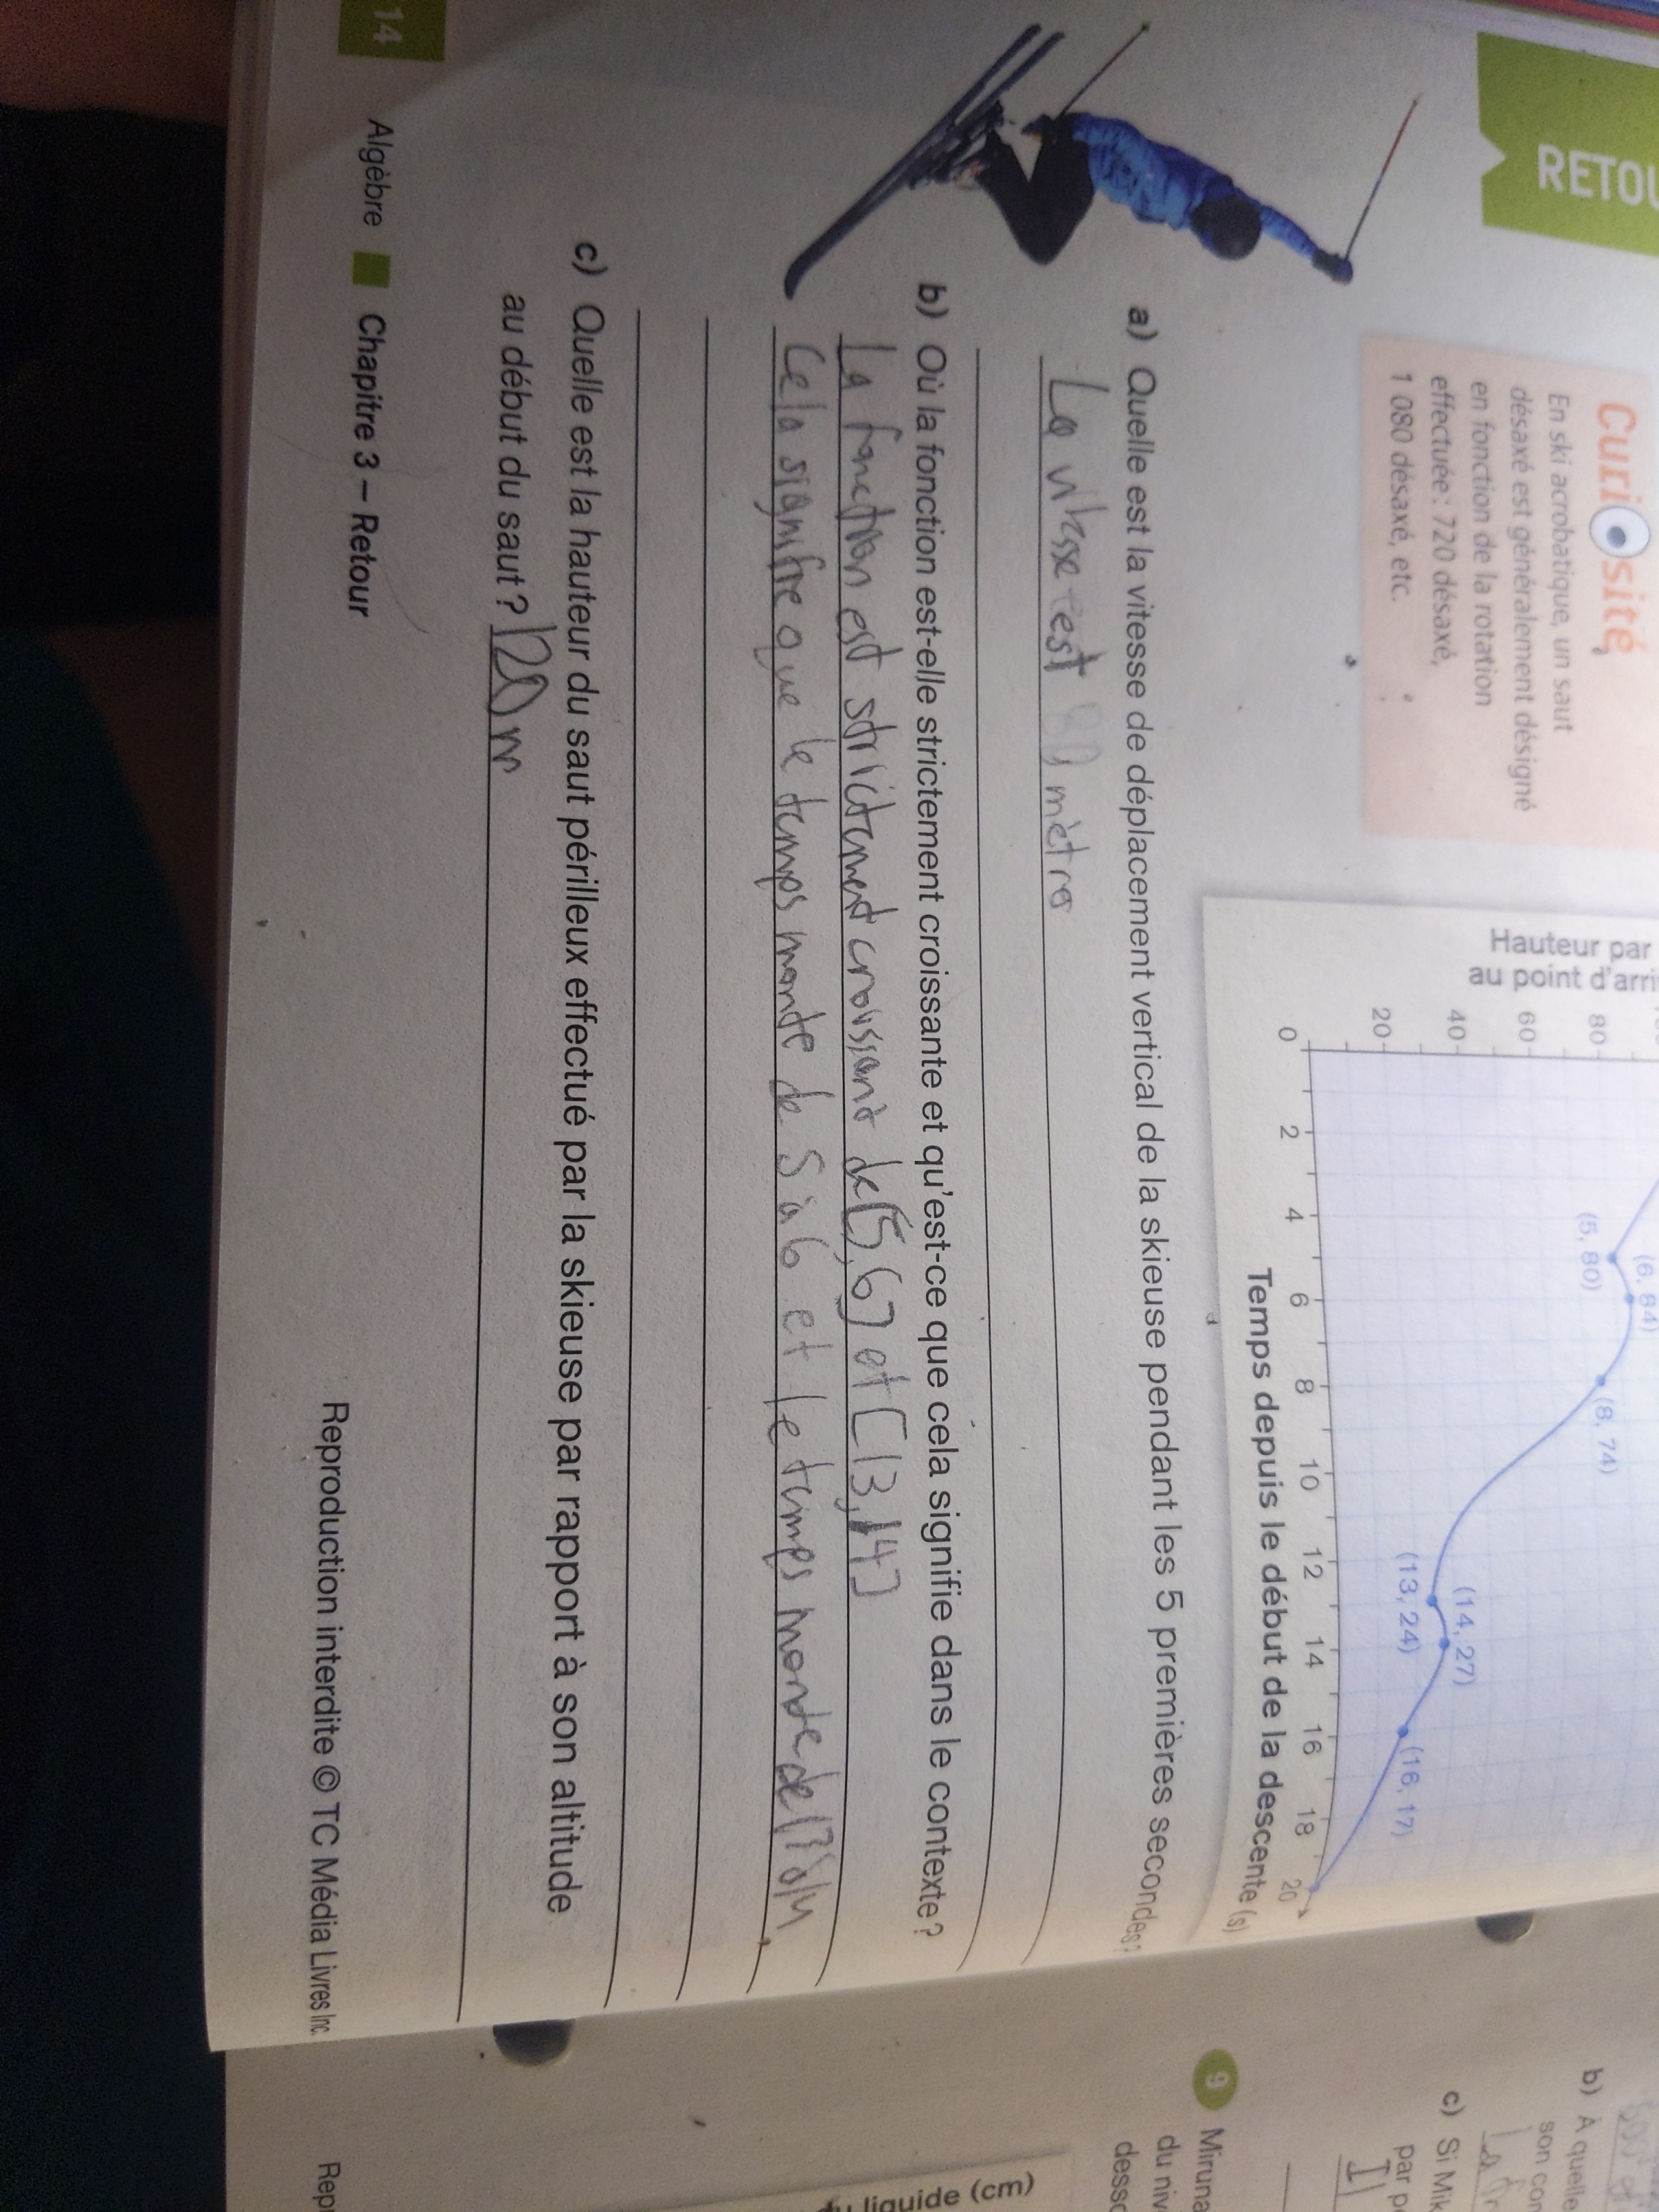 RETOU
Curiosité
En ski acrobatique, un saut
désaxé est généralement désigné
en fonction de la rotation
effectuée : 720 désaxé,
1 080 désaxé, etc.
Hauteur par
au point d'arri
80
60
40
20
0
2
4
6
8
10
12
14
16
18
20
(5, 80)
(6, 84)
(8, 74)
(13, 24)
(14, 27)
(16, 17)
Temps depuis le début de la descente (s)
a) Quelle est la vitesse de déplacement vertical de la skieuse pendant les 5 premières secondes?
La vitesse est mètre
b) Où la fonction est-elle strictement croissante et qu'est-ce que cela signifie dans le contexte?
La fonction est strictement croissant de [5,6] et [13,14]
Cela signifie que le temps monte de 5 à 6 et le temps monte de 13 à 14.
c) Quelle est la hauteur du saut périlleux effectué par la skieuse par rapport à son altitude
au début du saut? 120 m
14 Algèbre Chapitre 3 – Retour
Reproduction interdite © TC Média Livres Inc.
b) À quelle
son con
c) Si Mik
par p
9 Miruna
du niv
desso
liquide (cm)
Repr